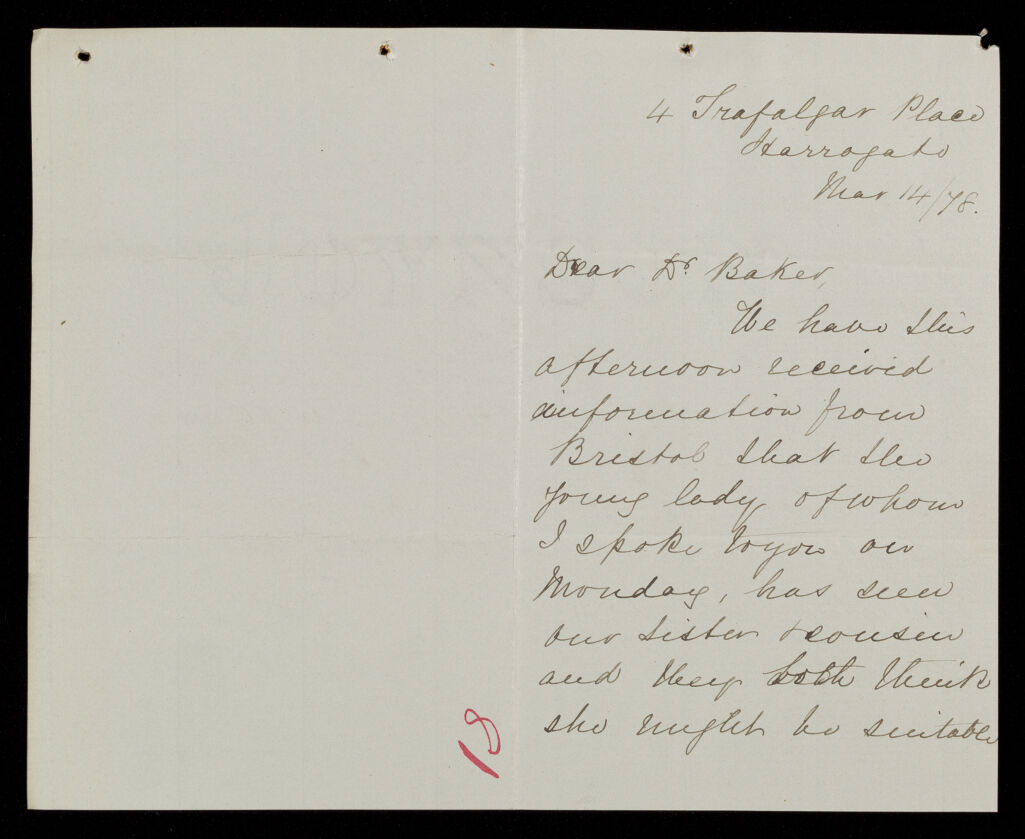 4 Trafalgar Place
Harrogate
Mar 14/78.
Dear Dr. Baker,
We have this
afternoon received
information from
Bristol that the
young lady of whom
I spoke to you on
Monday, has seen
our sister & cousin
and they both think
she might be suitable
18